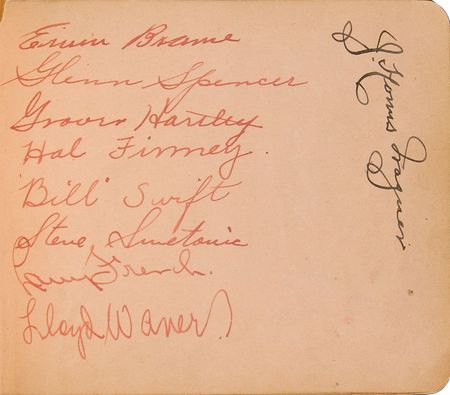 Erwin Brame
Glenn Spencer
Grover Hartley
Hal Finney.
"Bill" Swift
Steve Swetonic
Larry French.
Lloyd Waner
J. Honus Wagner